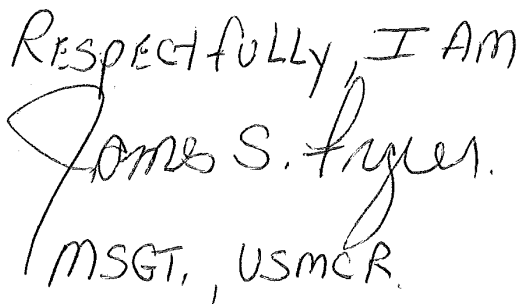 Respectfully, I AM
James S.
MSGT., USMCR.